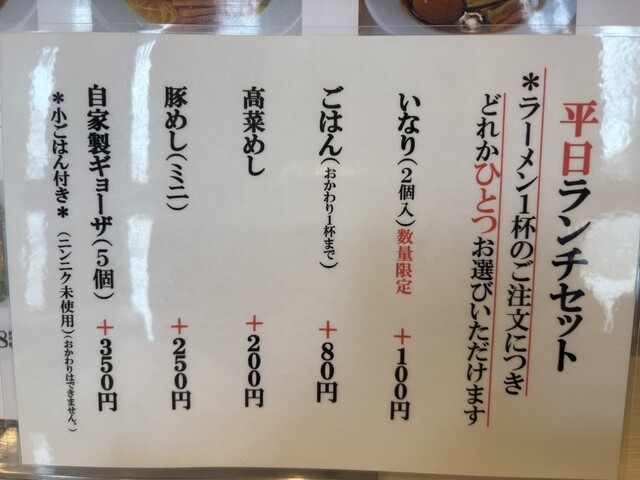 平日ランチセット
*ラーメン1杯のご注文につき
どれかひとつお選びいただけます
いなり(2個入)数量限定 +100円
ごはん(おかわり1杯まで) +80円
高菜めし +200円
豚めし(ミニ) +250円
自家製ギョーザ(5個) +350円
*小ごはん付き*(ニンニク未使用)(おかわりはできません。)